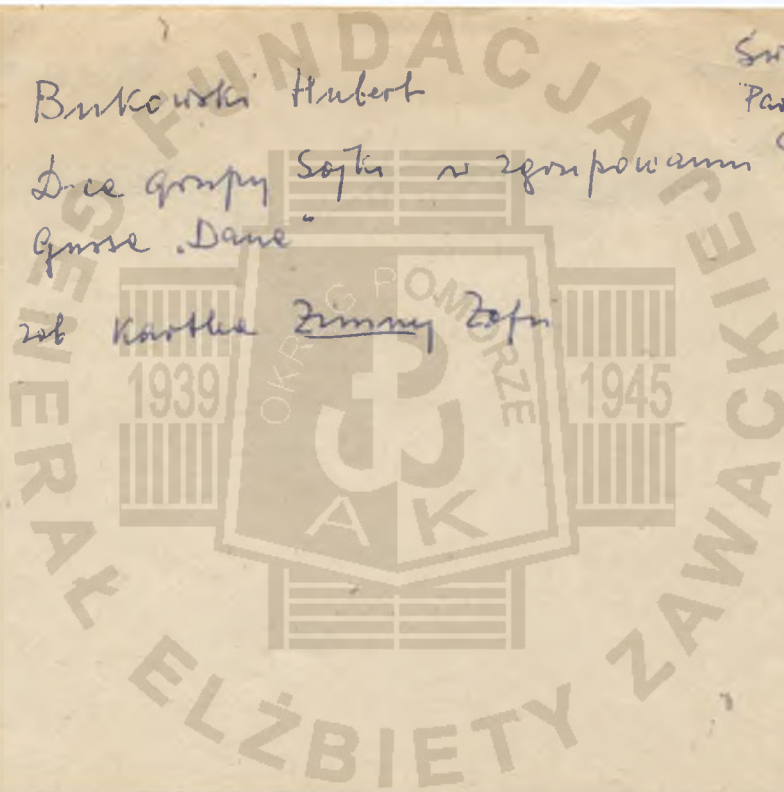 Bukowski Hubert
D-ca grupy Sojki w zgrupowaniu
Gussa „Dana”
zob kartka Zimny Zofii
FUNDACJA GENERAŁ ELŻBIETY ZAWACKIEJ
OKRĘG POMORZE
1939
1945
AK